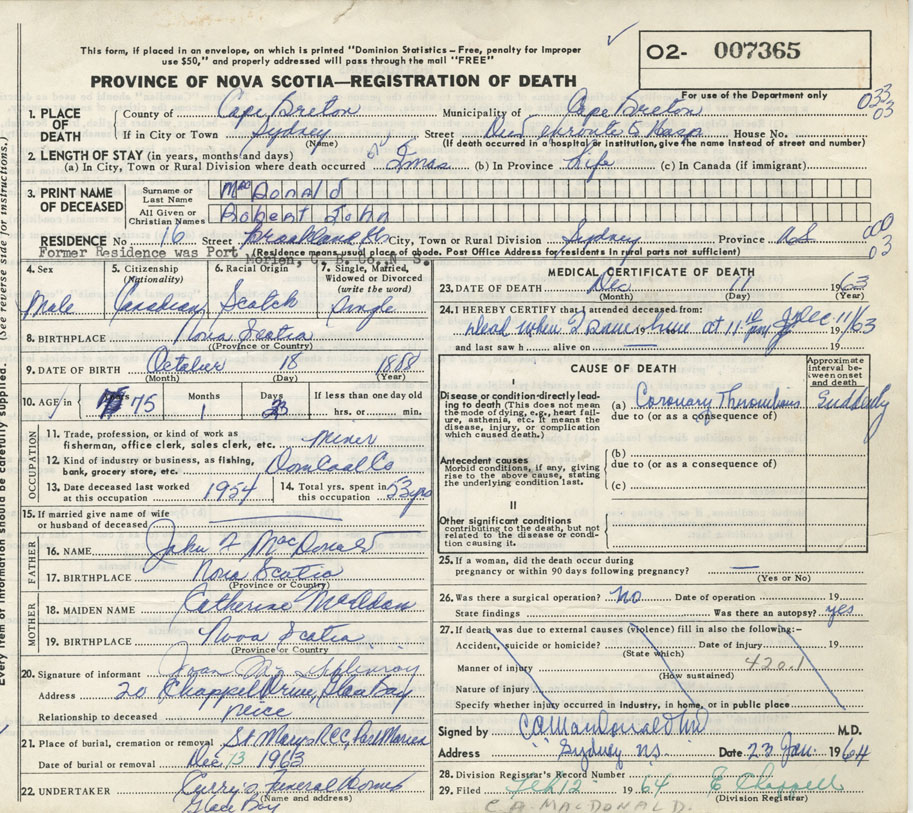 This form, if placed in an envelope, on which is printed "Dominion Statistics – Free, penalty for improper
use $50," and properly addressed will pass through the mail "FREE"
O2- 007365
For use of the Department only
PROVINCE OF NOVA SCOTIA—REGISTRATION OF DEATH
033
03
1. PLACE OF DEATH
County of Cape Breton Municipality of Cape Breton
If in City or Town Sydney Street Hosp House No.
(Name) (If death occurred in a hospital or institution, give the name instead of street and number)
2. LENGTH OF STAY (in years, months and days)
(a) In City, Town or Rural Division where death occurred 2mos (b) In Province Life (c) In Canada (if immigrant)
3. PRINT NAME OF DECEASED
Surname or Last Name MacDonald
All Given or Christian Names Robert John
RESIDENCE No 16 Street Brookland St City, Town or Rural Division Sydney Province N.S
000
03
Former Residence was Port Morien, C. B. Co., N. S.
(Residence means usual place of abode. Post Office Address for residents in rural parts not sufficient)
4. Sex Male
5. Citizenship (Nationality) Canadian
6. Racial Origin Scotch
7. Single, Married, Widowed or Divorced (write the word) Single
8. BIRTHPLACE Nova Scotia
(Province or Country)
9. DATE OF BIRTH October 18 1888
(Month) (Day) (Year)
10. AGE in Years 75 Months 1 Days 23 If less than one day old
hrs. or min.
OCCUPATION
11. Trade, profession, or kind of work as fisherman, office clerk, sales clerk, etc. Miner
12. Kind of industry or business, as fishing, bank, grocery store, etc. Dom Coal Co
13. Date deceased last worked at this occupation 1954
14. Total yrs. spent in this occupation 53 yrs
15. If married give name of wife or husband of deceased
FATHER
16. NAME John F MacDonald
17. BIRTHPLACE Nova Scotia
(Province or Country)
MOTHER
18. MAIDEN NAME Catherine McAdam
19. BIRTHPLACE Nova Scotia
(Province or Country)
20. Signature of informant
Address 20 Chappel Drive, Glace Bay
Relationship to deceased neice
21. Place of burial, cremation or removal St Marys RCC, Port Morien
Date of burial or removal Dec 13 1963
22. UNDERTAKER Curry's Funeral Home
(Name and address)
Glace Bay
MEDICAL CERTIFICATE OF DEATH
23. DATE OF DEATH Dec 11 1963
(Month) (Day) (Year)
24. I HEREBY CERTIFY that I attended deceased from:
Dead when I saw him at 11 pm Dec 11/63 19
and last saw h alive on — 19
CAUSE OF DEATH
Approximate interval between onset and death
I
Disease or condition directly leading to death (This does not mean the mode of dying, e.g., heart failure, asthenia, etc. It means the disease, injury, or complication which caused death.)
(a) Coronary Thrombosis Suddenly
due to (or as a consequence of)
Antecedent causes
Morbid conditions, if any, giving rise to the above cause, stating the underlying condition last.
(b)
due to (or as a consequence of)
(c)
II
Other significant conditions
contributing to the death, but not related to the disease or condition causing it.
25. If a woman, did the death occur during pregnancy or within 90 days following pregnancy? —
(Yes or No)
26. Was there a surgical operation? No Date of operation 19
State findings Was there an autopsy? yes
27. If death was due to external causes (violence) fill in also the following:–
Accident, suicide or homicide? Date of injury 19
(State which)
Manner of injury 420.1
(How sustained)
Nature of injury
Specify whether injury occurred in industry, in home, or in public place
Signed by C A MacDonald MD M.D.
Address Sydney NS Date 23 Jan. 1964
28. Division Registrar's Record Number
29. Filed Feb 12 1964 E Chappell
(Division Registrar)
C. A. MACDONALD.
(See reverse side for instructions.)
Every item of information should be carefully supplied.